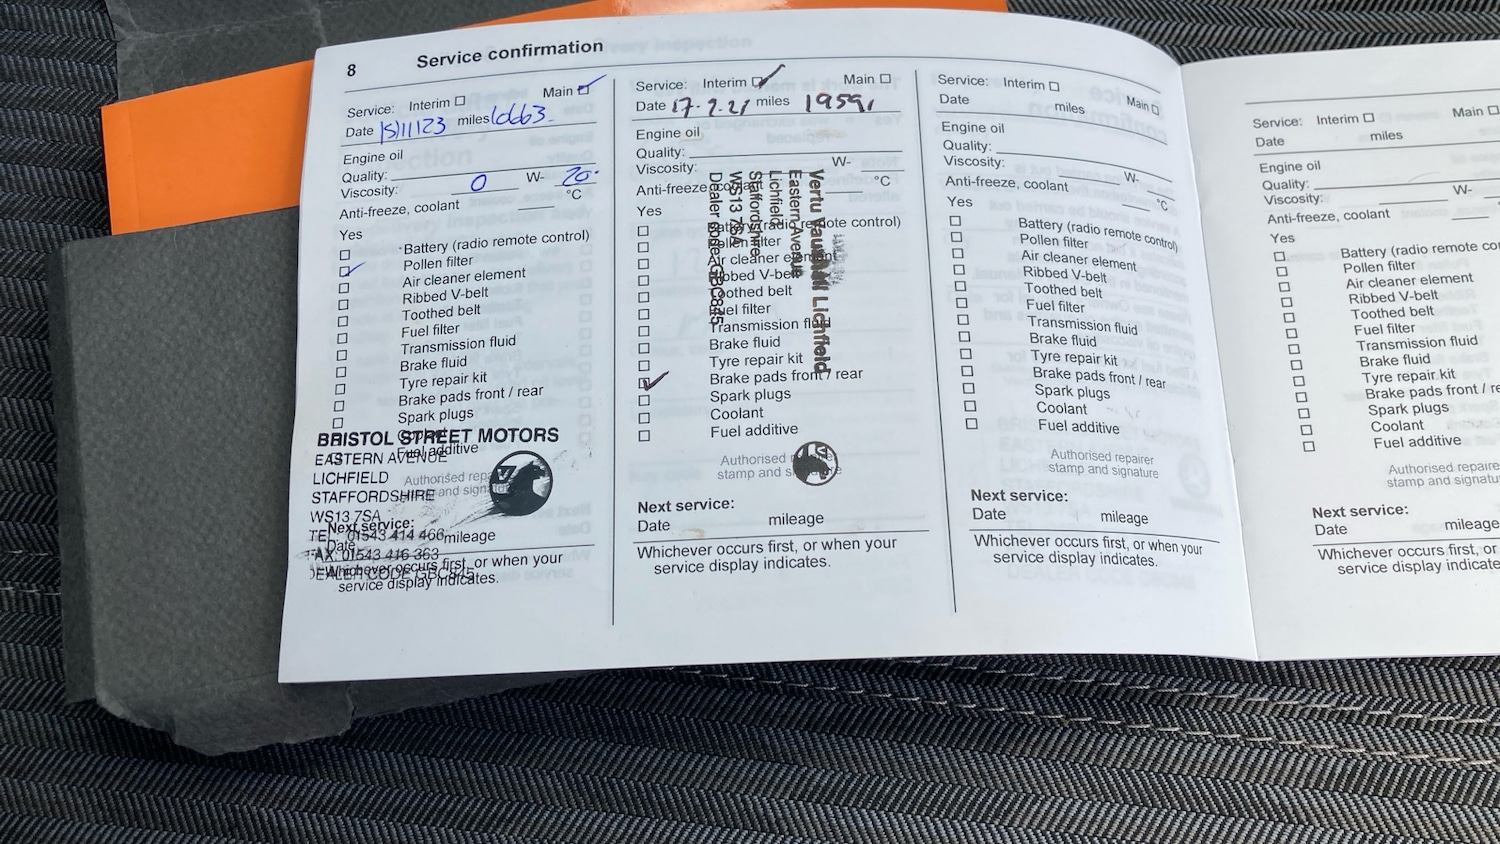 8 Service confirmation
Service: Interim Main
Date 15/11/23 miles
Engine oil
Quality:
Viscosity: 0 W- 20.
Anti-freeze, coolant °C
Yes
Battery (radio remote control)
Pollen filter
Air cleaner element
Ribbed V-belt
Toothed belt
Fuel filter
Transmission fluid
Brake fluid
Tyre repair kit
Brake pads front / rear
Spark plugs
Coolant
Fuel additive
BRISTOL STREET MOTORS
EASTERN AVENUE
LICHFIELD
STAFFORDSHIRE
WS13 7SA
TEL: 01543 414 466
FAX: 01543 416 363
DEALER CODE GBC845
Authorised repairer
stamp and signature
Next service:
Date mileage
Whichever occurs first, or when your
service display indicates.
Service: Interim Main
Date miles
Engine oil
Quality:
Viscosity: W-
Anti-freeze, coolant °C
Yes
Battery (radio remote control)
Pollen filter
Air cleaner element
Ribbed V-belt
Toothed belt
Fuel filter
Transmission fluid
Brake fluid
Tyre repair kit
Brake pads front / rear
Spark plugs
Coolant
Fuel additive
Vertu Vauxhall Lichfield
Eastern Avenue
Lichfield
Staffordshire
WS13 7SA
Dealer code: GBC845
Authorised repairer
stamp and signature
Next service:
Date mileage
Whichever occurs first, or when your
service display indicates.
Service: Interim Main
Date miles
Engine oil
Quality:
Viscosity: W-
Anti-freeze, coolant °C
Yes
Battery (radio remote control)
Pollen filter
Air cleaner element
Ribbed V-belt
Toothed belt
Fuel filter
Transmission fluid
Brake fluid
Tyre repair kit
Brake pads front / rear
Spark plugs
Coolant
Fuel additive
Authorised repairer
stamp and signature
Next service:
Date mileage
Whichever occurs first, or when your
service display indicates.
Service: Interim Main
Date miles
Engine oil
Quality:
Viscosity: W-
Anti-freeze, coolant
Yes
Battery (radio remote co
Pollen filter
Air cleaner element
Ribbed V-belt
Toothed belt
Fuel filter
Transmission fluid
Brake fluid
Tyre repair kit
Brake pads front / re
Spark plugs
Coolant
Fuel additive
Authorised repaire
stamp and signatu
Next service:
Date mileage
Whichever occurs first, or
service display indicates